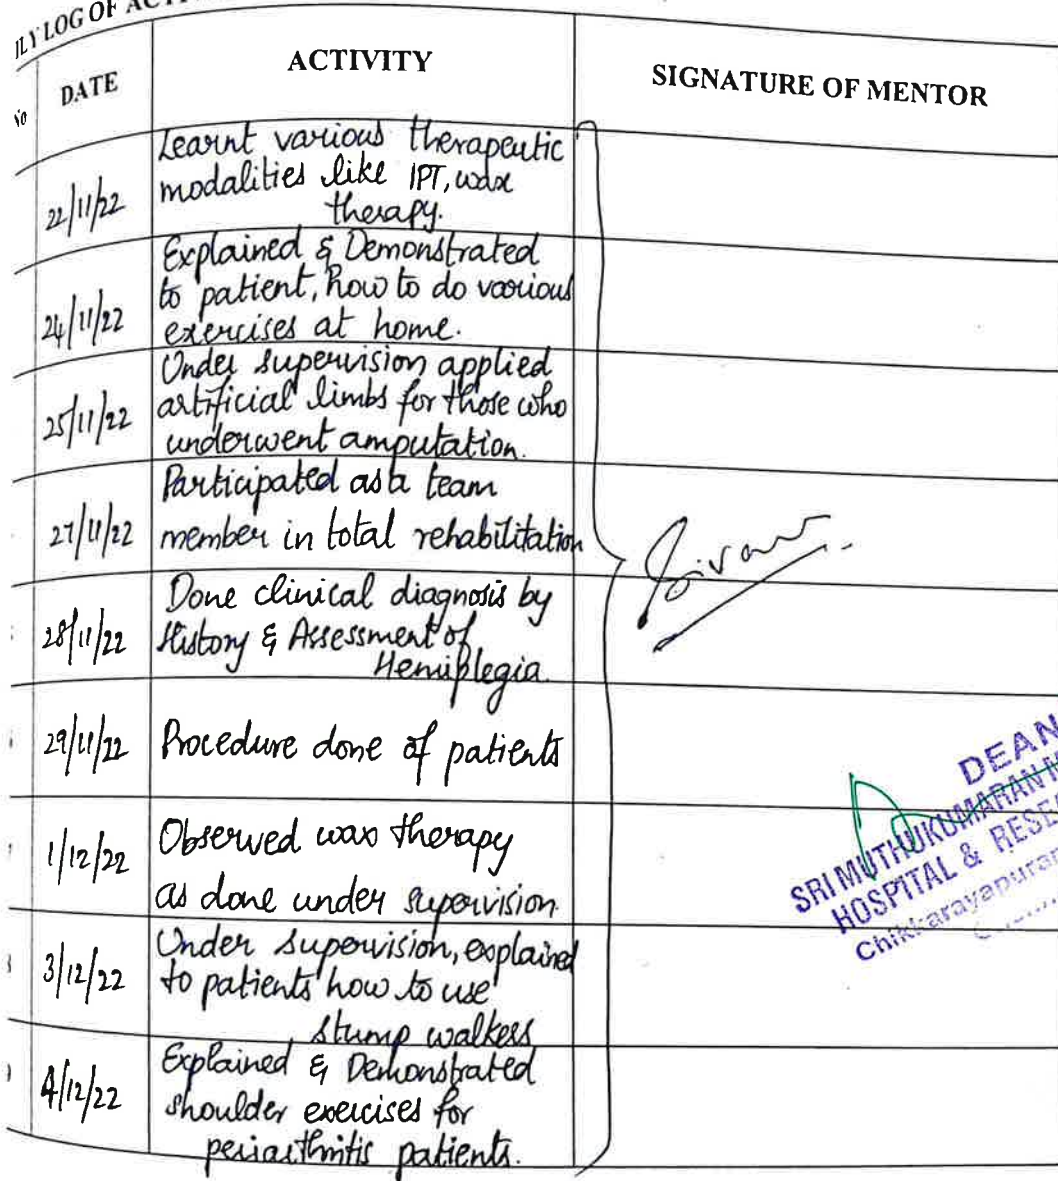 ILY LOG OF
No DATE ACTIVITY SIGNATURE OF MENTOR
22/11/22 Learnt various therapeutic
modalities like IPT, wax
therapy.
24/11/22 Explained & Demonstrated
to patient, how to do various
exercises at home.
25/11/22 Under supervision applied
artificial limbs for those who
underwent amputation.
27/11/22 Participated as a team
member in total rehabilitation
28/11/22 Done clinical diagnosis by
History & Assessment of
Hemiplegia.
29/11/22 Procedure done of patients
1/12/22 Observed wax therapy
as done under supervision
3/12/22 Under supervision, explained
to patients how to use
stump walkers
4/12/22 Explained & Demonstrated
shoulder exercises for
periarthritis patients.
Sivam
DEAN
SRI MUTHUKUMARAN
HOSPITAL & RESE
Chikkarayapuram